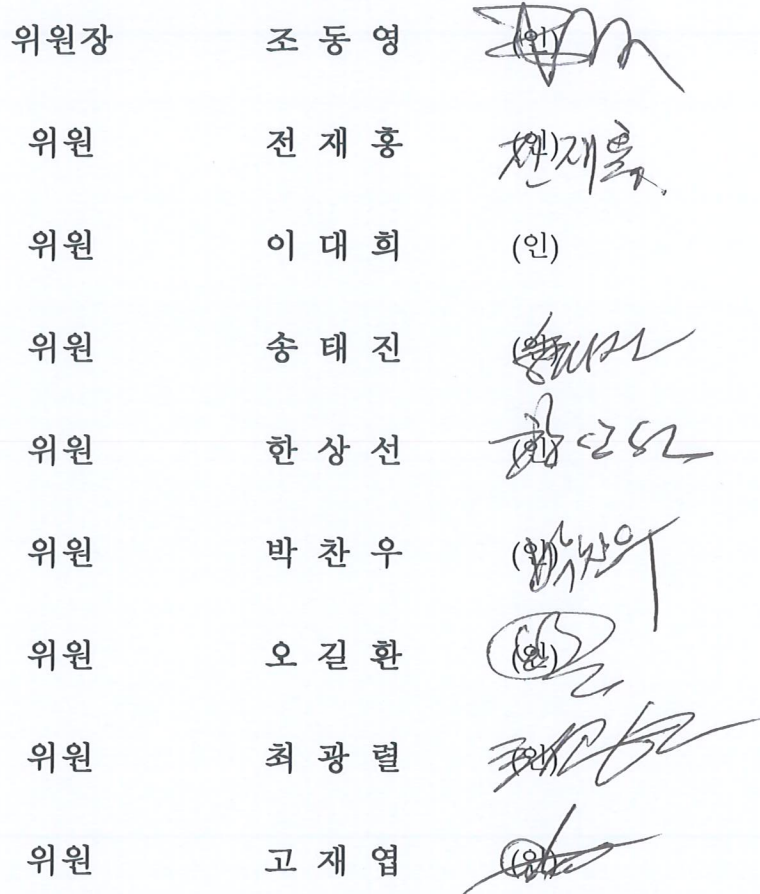 위원장 조 동 영 (인)
위원 전 재 홍 (인) 전재홍
위원 이 대 희 (인)
위원 송 태 진 (인)
위원 한 상 선 (인)
위원 박 찬 우 (인) 박찬우
위원 오 길 환 (인)
위원 최 광 렬 (인)
위원 고 재 엽 (인)